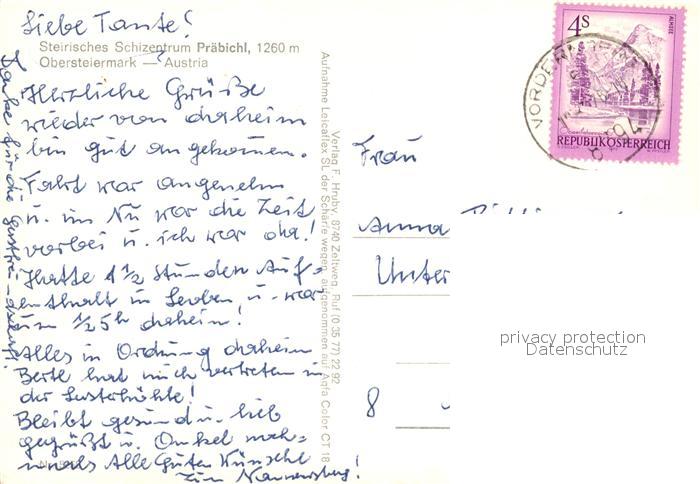 Liebe Tante!
Steirisches Schizentrum Präbichl, 1260 m
Obersteiermark — Austria
Herzliche Grüße
wieder von daheim
bin gut angekommen.
Fahrt war angenehm
u. im Nu war die Zeit
vorbei u. ich war da!
Hatte 1 1/2 Stunden Auf=
enthalt in Leoben, u. war
um 1/2 5h daheim!
Alles in Ordnung daheim
Berte hat mich vertreten in
der
Bleibt gesund u. lieb
gegrüßt u. Onkel noch=
mals Alle Guten Wünsche
zum Namenstag!
Danke für die Gastfreundschaft!
Verlag F. Hruby, 8740 Zeltweg, Ruf (0 35 77) 22 92
Aufnahme Leicaflex SL der Schärfe wegen aufgenommen auf Agfa Color CT 18
4S
ALMSEE
REPUBLIK ÖSTERREICH
VORDERN
Frau
Anna
Unter
8
privacy protection
Datenschutz